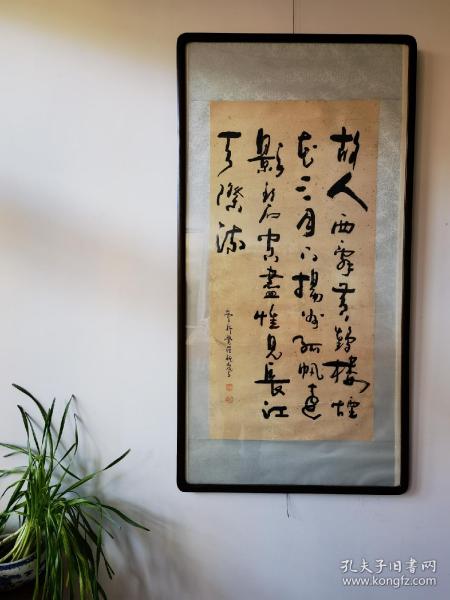 故人西辭黄鶴樓煙
花三月下揚州孤帆遠
影碧空盡惟見長江
天際流
孔夫子旧书网
www.kongfz.com